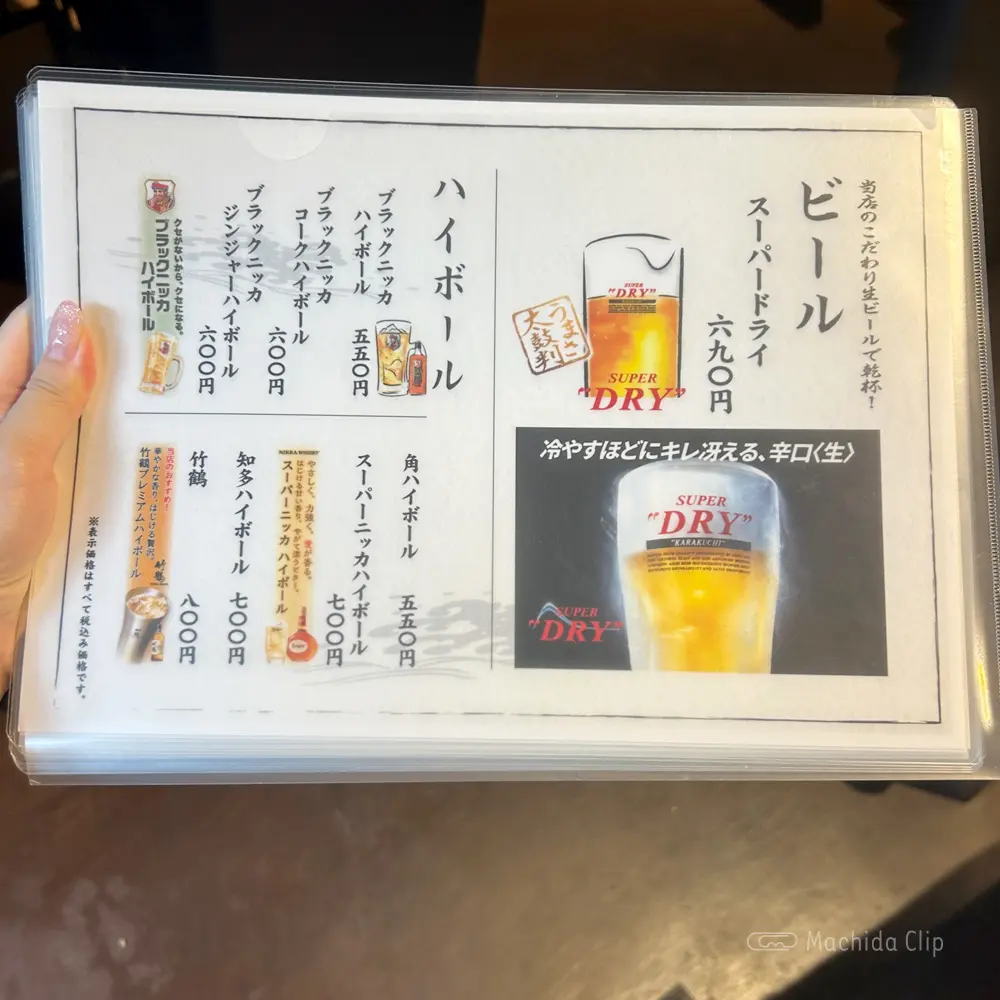 当店のこだわり生ビールで乾杯！
ビール
スーパードライ
六九〇円
SUPER
"DRY"
うまさ
太鼓判
SUPER
"DRY"
冷やすほどにキレ冴える、辛口〈生〉
SUPER
"DRY"
"KARAKUCHI"
SUPER
"DRY"
ハイボール
ブラックニッカ
ハイボール
五五〇円
ブラックニッカ
コークハイボール
六〇〇円
ブラックニッカ
ジンジャーハイボール
六〇〇円
クセがないから、クセになる。
ブラックニッカ
ハイボール
角ハイボール
五五〇円
スーパーニッカハイボール
七〇〇円
NIKKA WHISKY
やさしく、力強く、愛が香る。
はじける甘い香り、やがて漂うビター。
スーパーニッカ ハイボール
知多ハイボール
七〇〇円
竹鶴
八〇〇円
当店のおすすめ！
華やかな香り、はじける贅沢。
竹鶴プレミアムハイボール
竹鶴
※表示価格はすべて税込み価格です。
Machida Clip